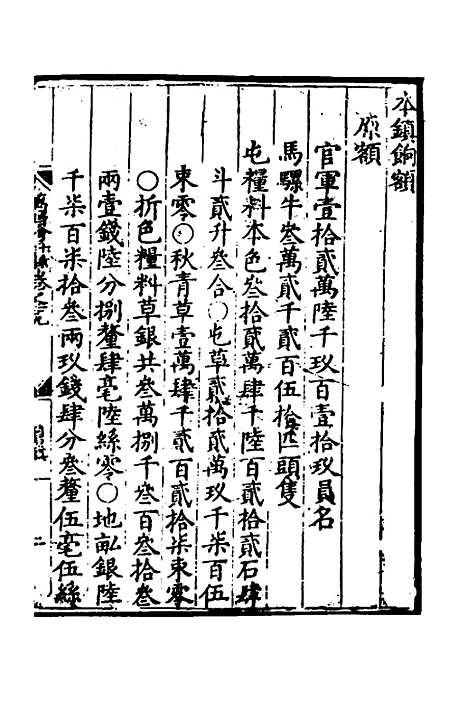 本鎮餉額
原額
官軍壹拾貳萬陸千玖百壹拾玖員名
馬騾牛叁萬貳千貳百伍拾匹頭隻
屯糧料本色叁拾貳萬肆千陸百貳拾貳石肆
斗貳升叁合〇屯草貳拾貳萬玖千柒百伍
束零〇秋青草壹萬肆千貳百貳拾柒束零
〇折色糧料草銀共叁萬捌千叁百叁拾叁
兩壹錢陸分捌釐肆毫陸絲零〇地畝銀陸
千柒百柒拾叁兩玖錢肆分叁釐伍毫伍絲